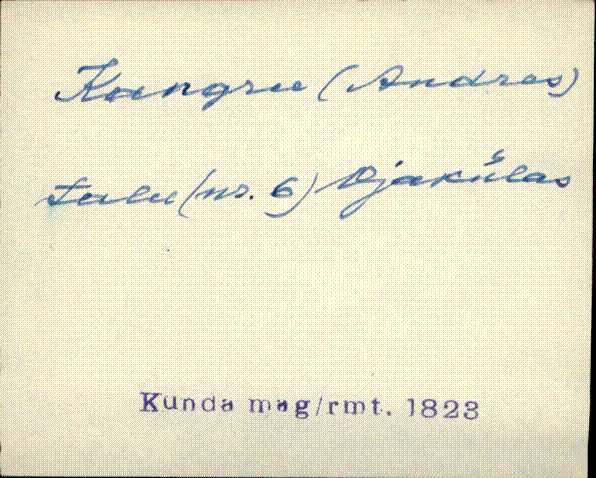 Kangru (Andres)
talu (nr. 6) Ojakülas
Kunda mag/rmt. 1823